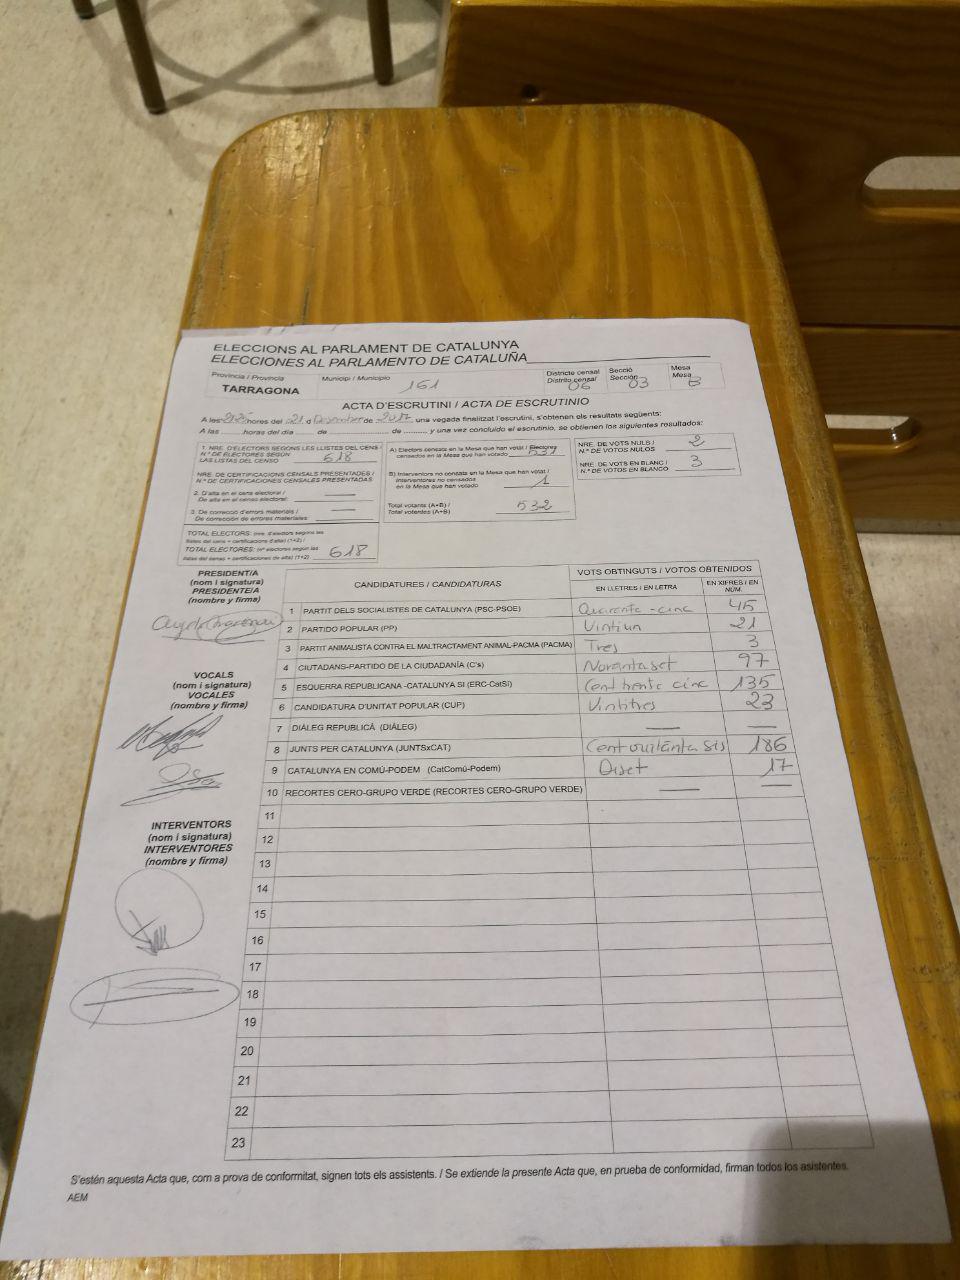 ELECCIONS AL PARLAMENT DE CATALUNYA
ELECCIONES AL PARLAMENTO DE CATALUÑA
Provincia / Provincia Municipi / Municipio Districte censal Secció Mesa
TARRAGONA 161 Distrito censal 06 Sección 03 Mesa B
ACTA D'ESCRUTINI / ACTA DE ESCRUTINIO
A les hores del 21 d Desembre de 2017, una vegada finalitzat l'escrutini, s'obtenen els resultats següents:
A las horas del día de de y una vez concluido el escrutinio, se obtienen los siguientes resultados:
1. NRE. D'ELECTORS SEGONS LES LLISTES DEL CENS
N.º DE ELECTORES SEGÚN
LAS LISTAS DEL CENSO 618
NRE. DE CERTIFICACIONS CENSALS PRESENTADES /
N.º DE CERTIFICACIONES CENSALES PRESENTADAS
2. D'alta en el cens electoral /
De alta en el censo electoral: —
3. De correcció d'errors materials /
De corrección de errores materiales: —
TOTAL ELECTORS: (nre. d'electors segons les
llistes del cens + certificacions d'alta) (1+2) /
TOTAL ELECTORES: (nº electores según las
listas del censo + certificaciones de alta) (1+2) 618
A) Electors censats en la Mesa que han votat / Electores
censados en la Mesa que han votado 531
B) Interventors no censats en la Mesa que han votat /
Interventores no censados
en la Mesa que han votado 1
Total votants (A+B) /
Total votantes (A+B) 532
NRE. DE VOTS NULS /
N.º DE VOTOS NULOS 2
NRE. DE VOTS EN BLANC /
N.º DE VOTOS EN BLANCO 3
PRESIDENT/A
(nom i signatura)
PRESIDENTE/A
(nombre y firma)
VOCALS
(nom i signatura)
VOCALES
(nombre y firma)
INTERVENTORS
(nom i signatura)
INTERVENTORES
(nombre y firma)
CANDIDATURES / CANDIDATURAS VOTS OBTINGUTS / VOTOS OBTENIDOS
EN LLETRES / EN LETRA EN XIFRES / EN NÚM.
1 PARTIT DELS SOCIALISTES DE CATALUNYA (PSC-PSOE) Quaranta-cinc 45
2 PARTIDO POPULAR (PP) Vintiun 21
3 PARTIT ANIMALISTA CONTRA EL MALTRACTAMENT ANIMAL-PACMA (PACMA) Tres 3
4 CIUTADANS-PARTIDO DE LA CIUDADANÍA (C's) Noranta set 97
5 ESQUERRA REPUBLICANA -CATALUNYA SI (ERC-CatSí) Cent trenta cinc 135
6 CANDIDATURA D'UNITAT POPULAR (CUP) Vintitres 23
7 DIÀLEG REPUBLICÀ (DIÀLEG) — —
8 JUNTS PER CATALUNYA (JUNTSxCAT) Cent vuitanta sis 186
9 CATALUNYA EN COMÚ-PODEM (CatComú-Podem) Diset 17
10 RECORTES CERO-GRUPO VERDE (RECORTES CERO-GRUPO VERDE) — —
11
12
13
14
15
16
17
18
19
20
21
22
23
S'estén aquesta Acta que, com a prova de conformitat, signen tots els assistents. / Se extiende la presente Acta que, en prueba de conformidad, firman todos los asistentes.
AEM